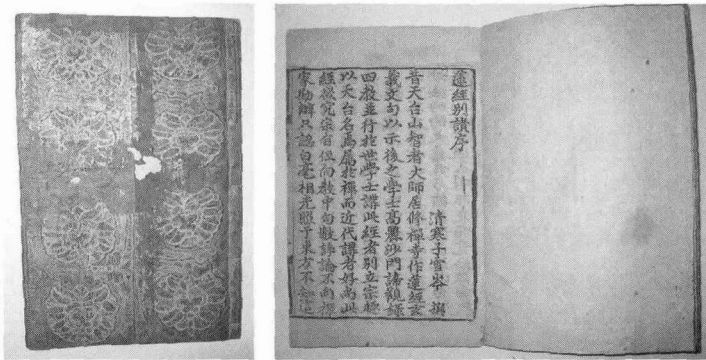 蓮經別讚序
清寒子雪岑 撰
昔天台山智者大師居修禪寺作蓮經玄
義文句以示後之學士高麗沙門諦觀錄
四教並行於世學士講此經者別立宗
以天台名焉屬於禪而近代講者好為此
經 究宗旨但向教中句數諍論不向禪
家 辦只認白毫相光照于東方不知這